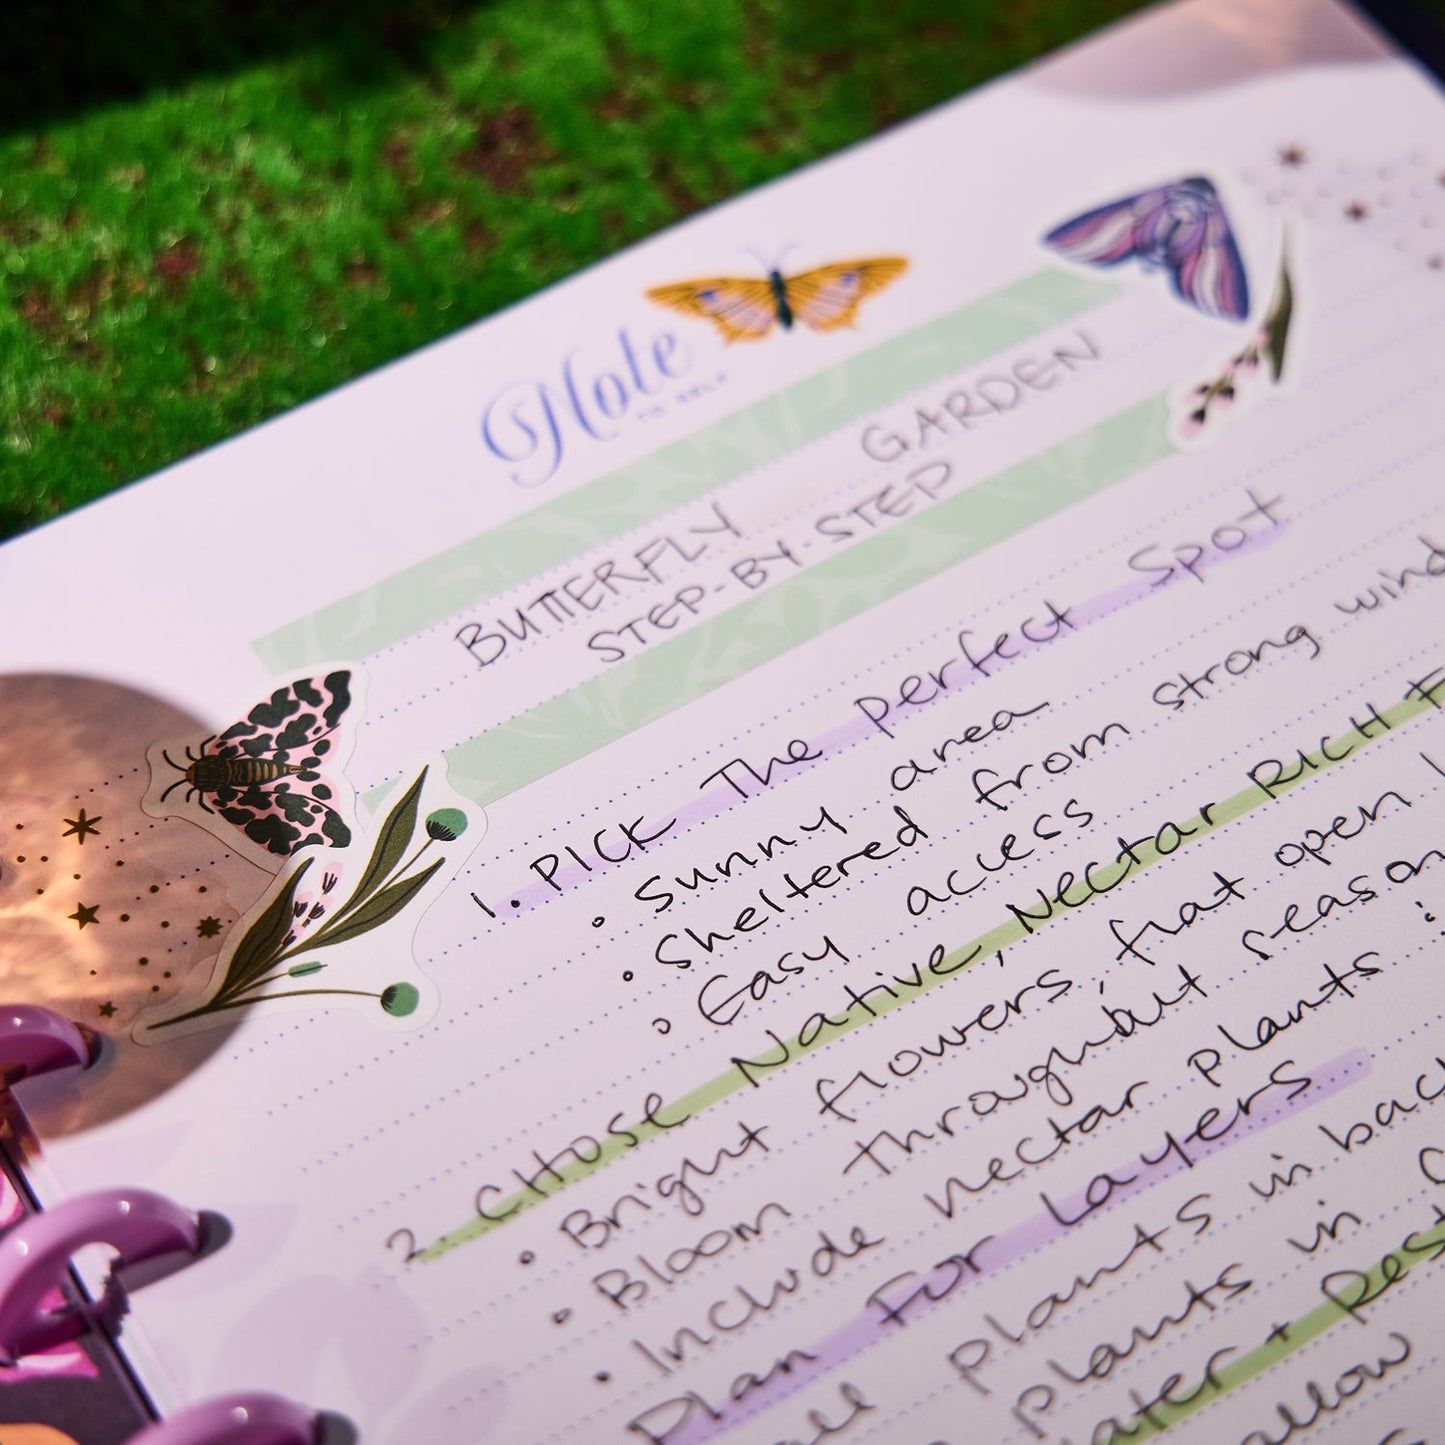 Note
TO SELF
BUTTERFLY GARDEN
STEP-BY-STEP
1. PICK The perfect Spot
• Sunny area
• Sheltered from strong wind
• Easy access
2. CHOSE Native, Nectar RICH F
• Bright flowers, that open
• Bloom throughout season
• Include nectar plants :
Plan For Layers
plants in back
plants in
ater + Rest
allow